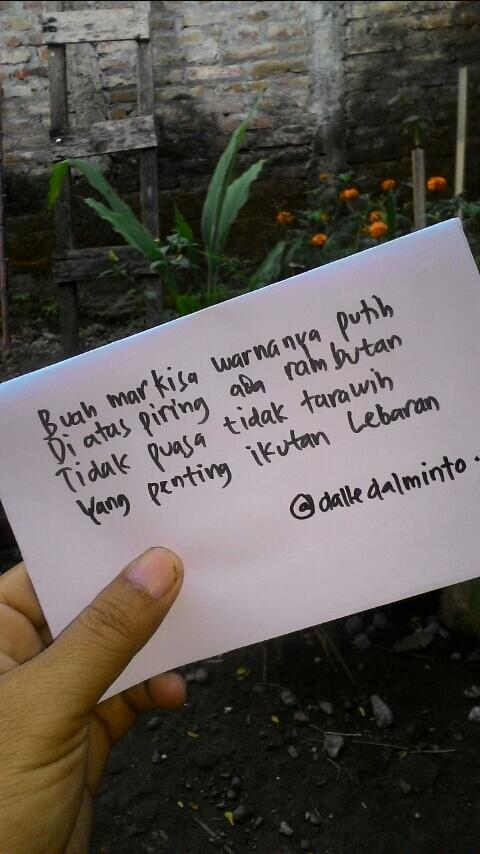 Buah markisa warnanya putih
Di atas piring ada rambutan
Tidak puasa tidak tarawih
Yang penting ikutan Lebaran
@dalkedalminto.